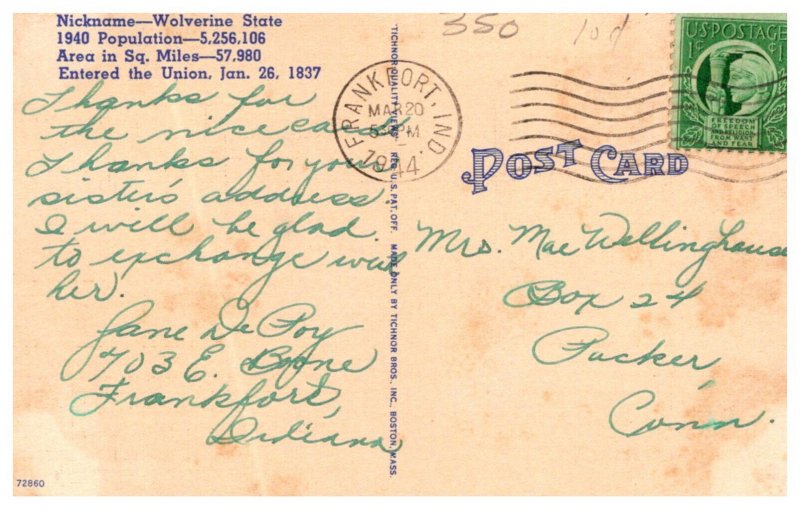 Nickname—Wolverine State
1940 Population—5,256,106
Area in Sq. Miles—57,980
Entered the Union, Jan. 26, 1837
Thanks for
the nice card
Thanks for your
sister's address.
I will be glad
to exchange with
her.
Jane DePoy
703 E. Boone
Frankfort,
Indiana
72860
TICHNOR QUALITY VIEWS REG. U.S. PAT. OFF. MADE ONLY BY TICHNOR BROS., INC., BOSTON, MASS.
350
10¢
FRANKFORT, IND.
MAR 20
PM
1944
U.S. POSTAGE
1¢ ¢1
FREEDOM
OF SPEECH
AND RELIGION,
FROM WANT
AND FEAR
POST CARD
Mrs. Mae Wellinghause
Box 24
Packer,
Conn.